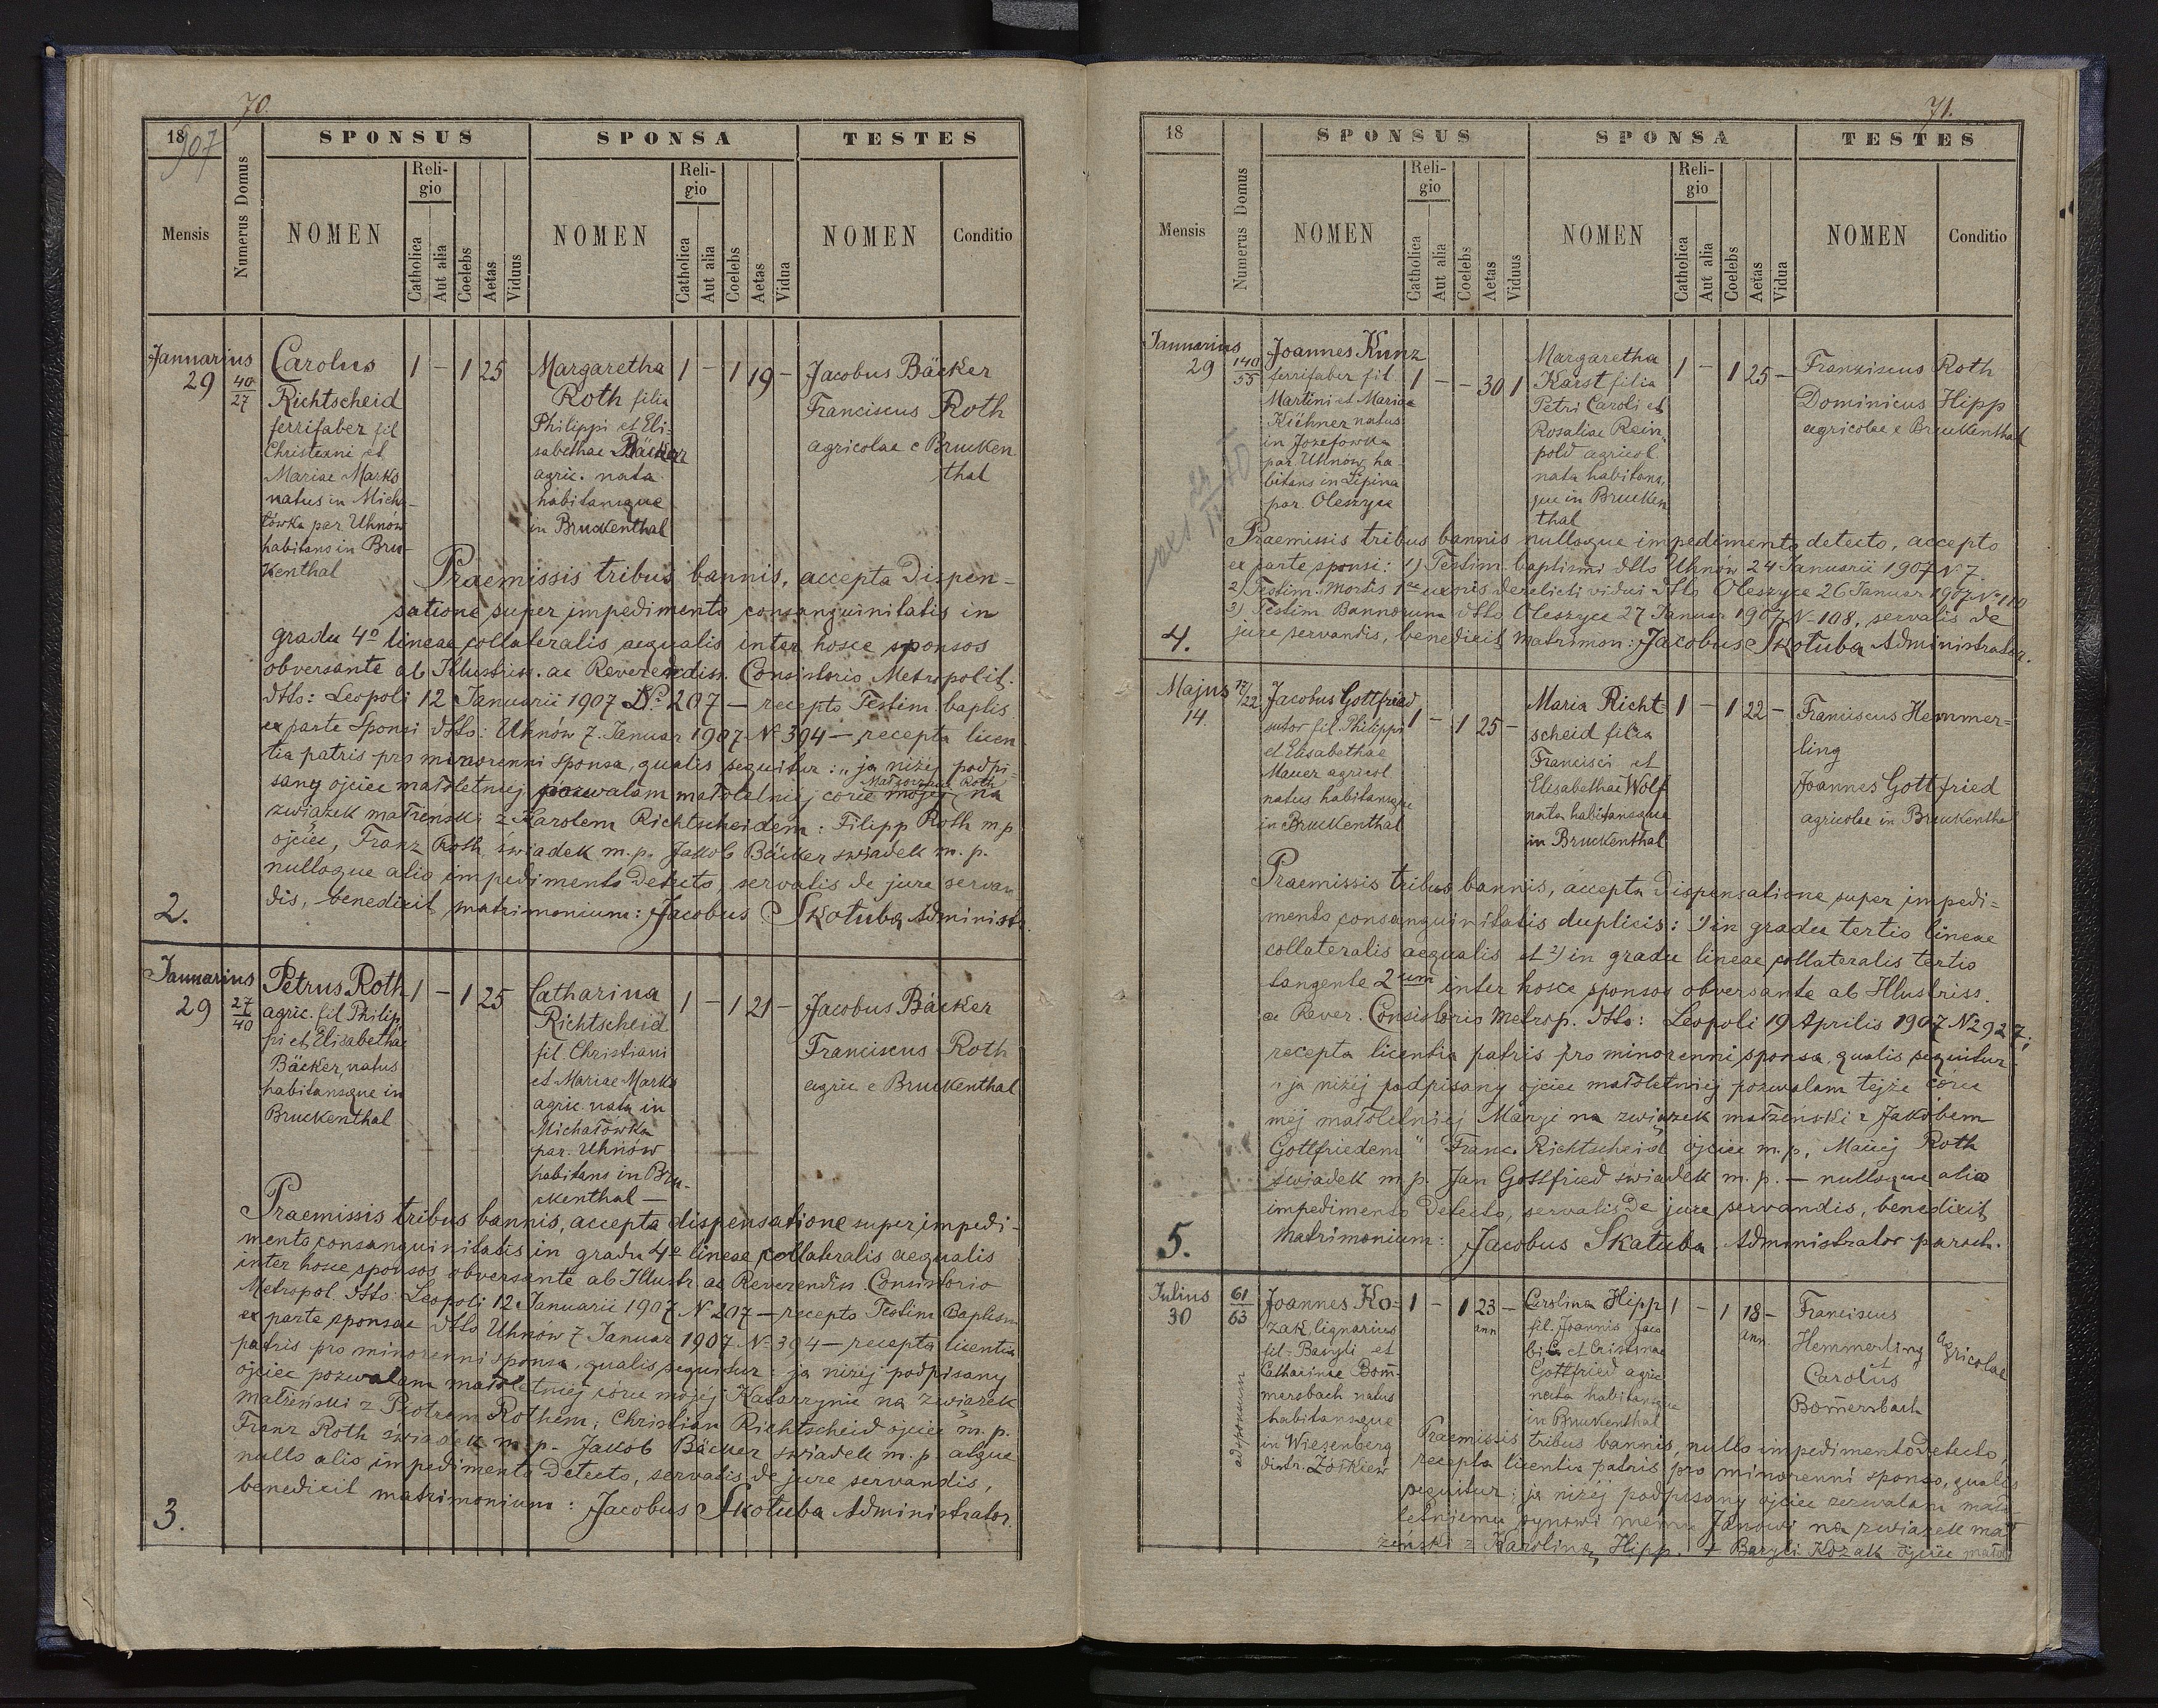 70.
18907
Mensis
Numerus Domus
SPONSUS
NOMEN
Religio
Catholica
Aut alia
Coelebs
Aetas
Viduus
SPONSA
NOMEN
Religio
Catholica
Aut alia
Coelebs
Aetas
Vidua
TESTES
NOMEN
Conditio
Januarius
29
40
27
Carolus
Richtscheid
ferrifaber fil
Christiani et
Mariae Marks
natus in Micha-
łówka par Uhnów
habitans in Bru-
kenthal
1 - 1 25
Margaretha
Roth filia
Philippi et Eli-
sabethae Bäcker
agric. nata
habitansque
in Bruckenthal
1 - 1 19 -
Jacobus Bäcker
Franciscus Roth
agricolae e Brucken
thal
Praemissis tribus bannis, accepta dispen-
satione super impedimento consanguinitatis in
gradu 4º lineae collateralis aequalis inter hosce sponsos
obversante ab Illustriss. ac Reverendiss. Consistorio Metropolit.
dtto: Leopoli 12 Januarii 1907 Nº 207 — recepto Testim. baptis
ex parte Sponsi dtto: Uhnów 7. Januar 1907 Nº 394 — recepta licen
tia patris pro minorenni sponsa, qualis sequitur: „ja niżej podpi=
sany ojciec małoletniej pozwalam małoletniej córce mojej Małgorzacie Roth na
związek małżeński z Karolem Richtscheidem: Filipp Roth m.p
ojciec, Franz Roth świadek m.p. Jakob Bäcker świadek m.p.
nulloque alio impedimento detecto, servatis de jure servan
dis, benedixit matrimonium: Jacobus Skotuba Administr.
2.
Januarius
29
27
40
Petrus Roth
agric. fil Philip
pi et Elisabethae
Bäcker, natus
habitansque in
Bruckenthal
1 - 1 25
Catharina
Richtscheid
fil Christiani
et Mariae Marks
agric. nata in
Michałówka
par. Uhnów
habitans in Bru-
ckenthal —
1 - 1 21 -
Jacobus Bäcker
Franciscus Roth
agric e Bruckenthal
Praemissis tribus bannis, accepta dispensatione super impedi-
mento consanguinitatis in gradu 4º lineae collateralis aequalis
inter hosce sponsos obversante ab Illustr. ac Reverendiss Consistorio
Metropol. dtto: Leopoli 12 Januarii 1907 Nº 207 — recepto Testim Baptism
ex parte sponsae dtto Uhnów 7 Januar 1907 Nº 394 — recepta licentia
patris pro minorenni sponsa, qualis sequitur: ja niżej podpisany
ojciec pozwalam małoletniej córce mojej Katarzynie na związek
małżeński z Piotrem Rothem; Christian Richtscheid ojciec m.p.
Franz Roth świadek m.p. Jakób Bäcker świadek m.p. atque
nullo alio impedimento detecto, servatis de jure servandis,
benedixit matrimonium: Jacobus Skotuba Administrator.
3.
71.
18
Mensis
Numerus Domus
SPONSUS
NOMEN
Religio
Catholica
Aut alia
Coelebs
Aetas
Viduus
SPONSA
NOMEN
Religio
Catholica
Aut alia
Coelebs
Aetas
Vidua
TESTES
NOMEN
Conditio
Januarius
29
140
55
Joannes Kunz
ferrifaber fil
Martini et Mariae
Kichner natus
in Josefowka
par. Uhnów, ha-
bitans in Lipina
par. Oleszyce
1 - - 30 1
Margaretha
Karst filia
Petri Caroli et
Rosaliae Rein
pold agricol
nata habitans
que in Brucken
thal
1 - 1 25 -
Franziscus Roth
Dominicus Hipp
agricolae e Bruckenthal
Praemissis tribus bannis nulloque impedimento detecto, accepto
ex parte sponsi: 1) Testim. baptismi dtto Uhnów 24 Januarii 1907 Nº 7.
2) Testim. Mortis 1ae uxoris derelicti vidui dtto Oleszyce 26 Januar 1907 Nº 110
3) Testim Bannorum dtto Oleszyce 27 Januar 1907 Nº 108, servatis de
jure servandis, benedixit matrimon: Jacobus Skotuba Administrator.
4.
Majus
14.
17/22
Jacobus Gottfried
sutor fil. Philippi
et Elisabethae
Mauer agricol
natus habitansque
in Bruckenthal
1 - 1 25 -
Maria Richt-
scheid filia
Francisci et
Elisabethae Wolf
nata habitansque
in Bruckenthal
1 - 1 22 -
Franciscus Hemmer=
ling
Joannes Gottfried
agricolae in Bruckenthal
Praemissis tribus bannis, accepta dispensatione super impedi=
mento consanguinitatis duplicis: 1) in gradu tertio lineae
collateralis aequalis et 2) in gradu lineae collateralis tertio
tangente 2um inter hosce sponsos obversante ab Illustriss.
ac Rever. Consistorio Metrop. dtto: Leopoli 19 Aprilis 1907 N 2927;
recepta licentia patris pro minorenni sponsa, qualis sequitur
„ja niżej podpisany ojciec małoletniej pozwalam tejże córce
mej małoletniej Maryi na związek małżeński z Jakóbem
Gottfriedem" Franc. Richtscheid ojciec m.p. Maciej Roth
świadek m.p. Jan Gottfried świadek m.p. — nulloque alio
impedimento detecto, servatis de jure servandis, benedixit
matrimonium: Jacobus Skatuba Administrator paroch.
5.
Julius
30
61
63
ad sponsum
Joannes Ko=
zak, lignarius
fil. Basyli et
Catharinae Bom̄-
mersbach natus
habitansque
in Wiesenberg
distr. Żółkiew
1 - 1 23 -
ann
Carolina Hipp
fil. Joannis Jaco
bi et Cristinae
Gottfried agric
nata habitansque
in Bruckenthal
1 - 1 18 -
ann.
Franciscus
Hemmerling
et
Carolus
Bom̄ersbach
agricolae
Praemissis tribus bannis, nullo impedimento detecto,
recepta licentia patris pro minorenni sponso, qualis
sequitur: ja niżej podpisany ojciec zezwalam mało
letniemu synowi memu Janowi na związek mał
żeński z Karoliną Hipp. + Bazyli Kozak ojciec mało